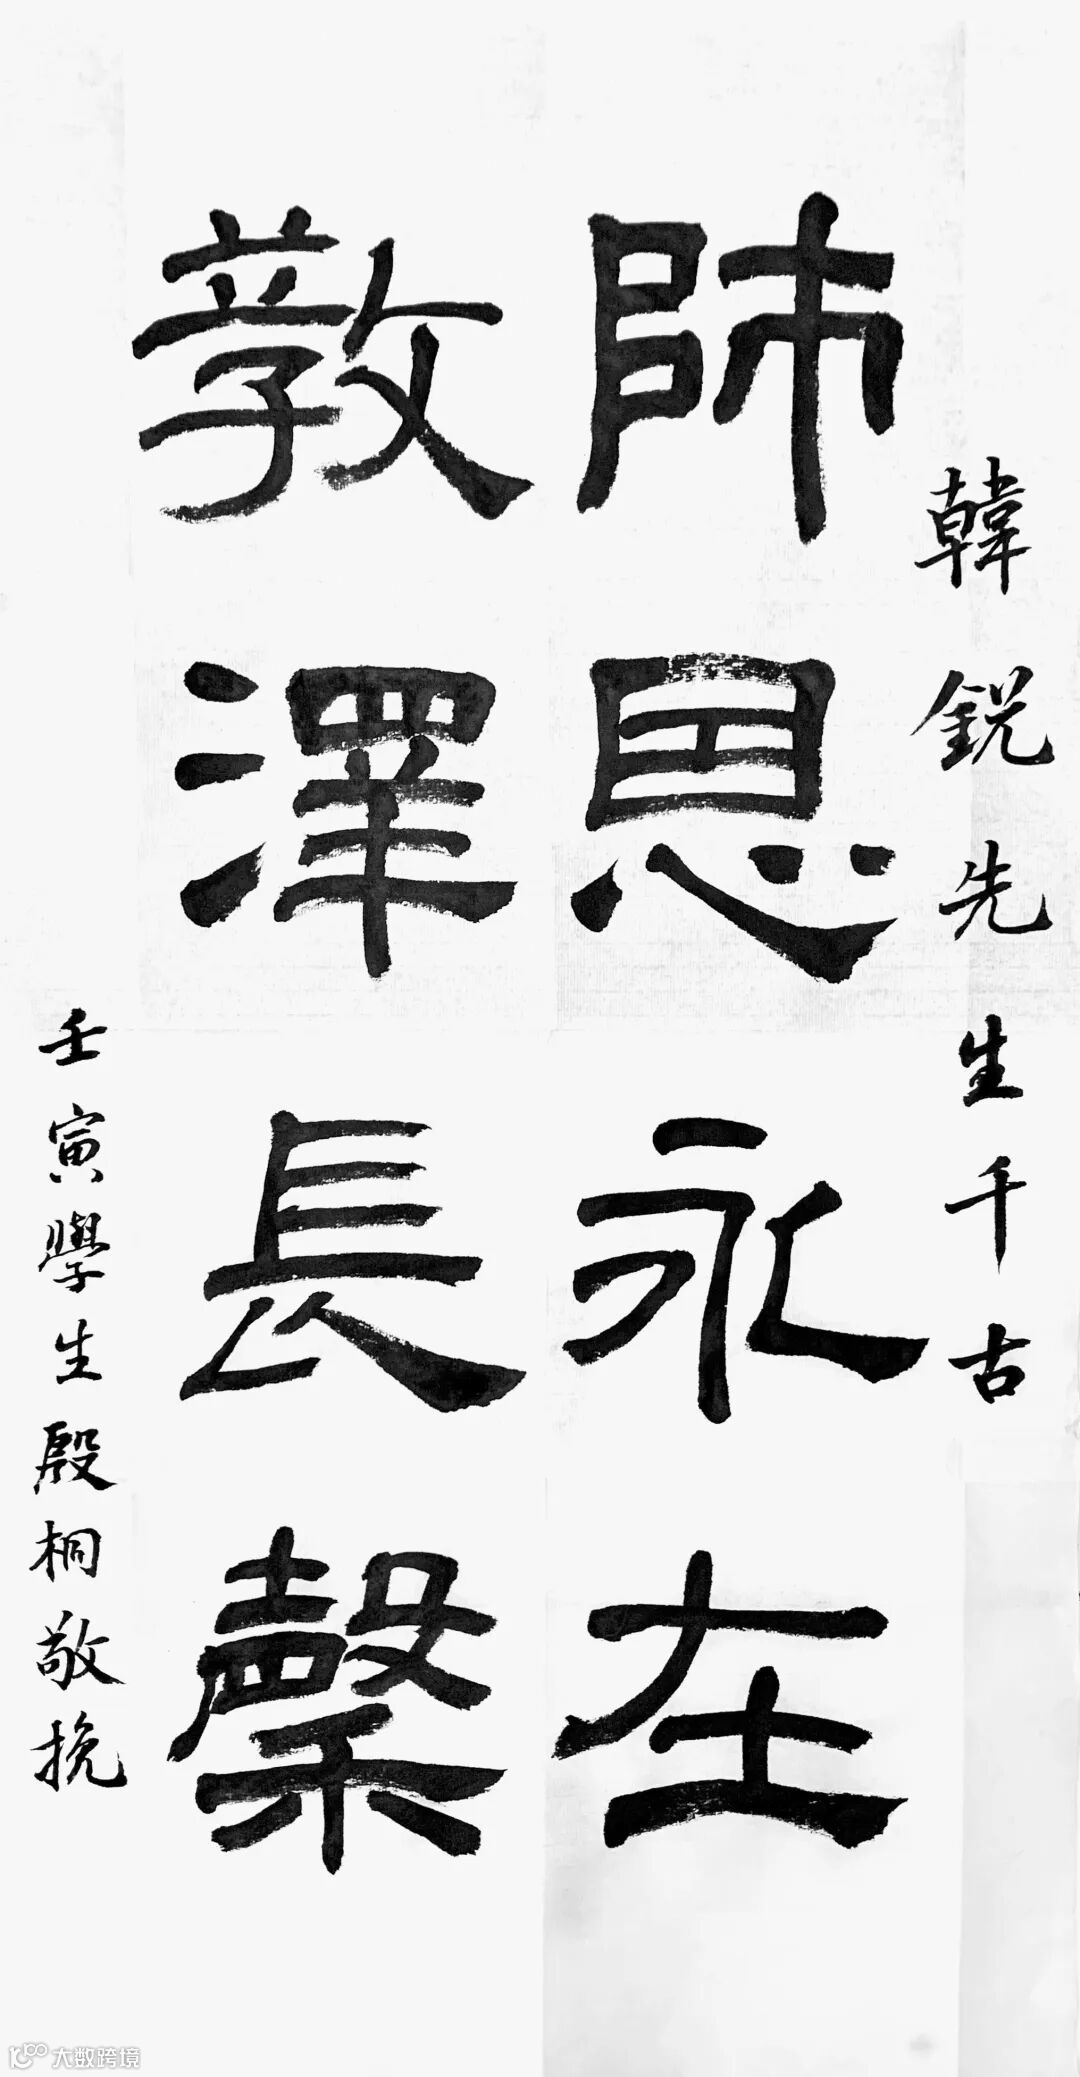 韓銳先生千古
師恩永在
教澤長馨
壬寅學生殷桐敬挽
大数跨境